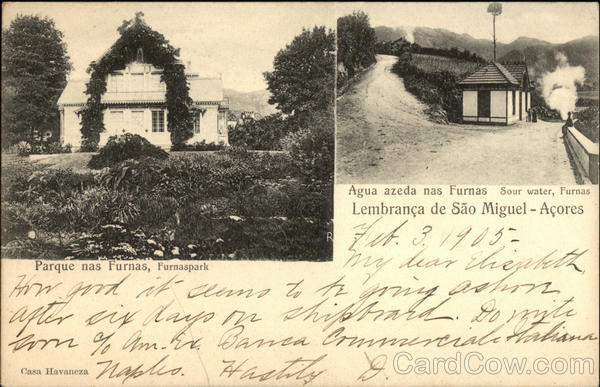 Agua azeda nas Furnas Sour water, Furnas
Lembrança de São Miguel - Açores
Parque nas Furnas, Furnaspark
Feb. 3, 1905-
My dear Elizabeth,
How good it seems to be going ashore
after six days on shipboard. Do write
soon c/o Am. Ex. Banca Commerciale Italiana
Naples. Hastily D.
Casa Havaneza
CardCow.com